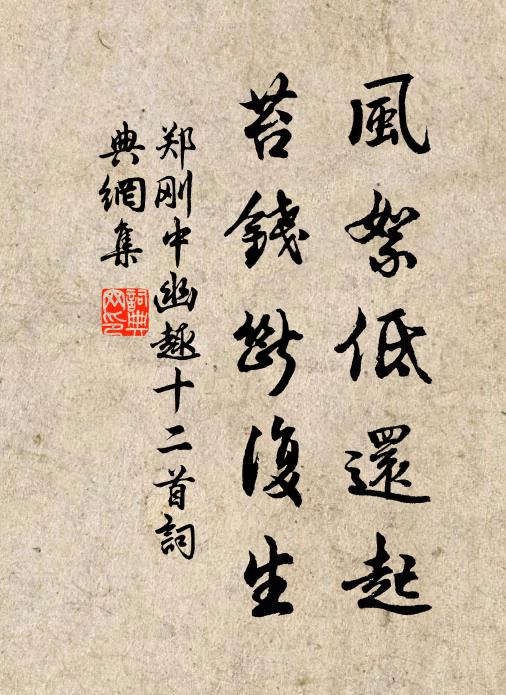 風絮低還起
苔錢斷復生
郑刚中幽趣十二首詞
典網集
詞典
网印